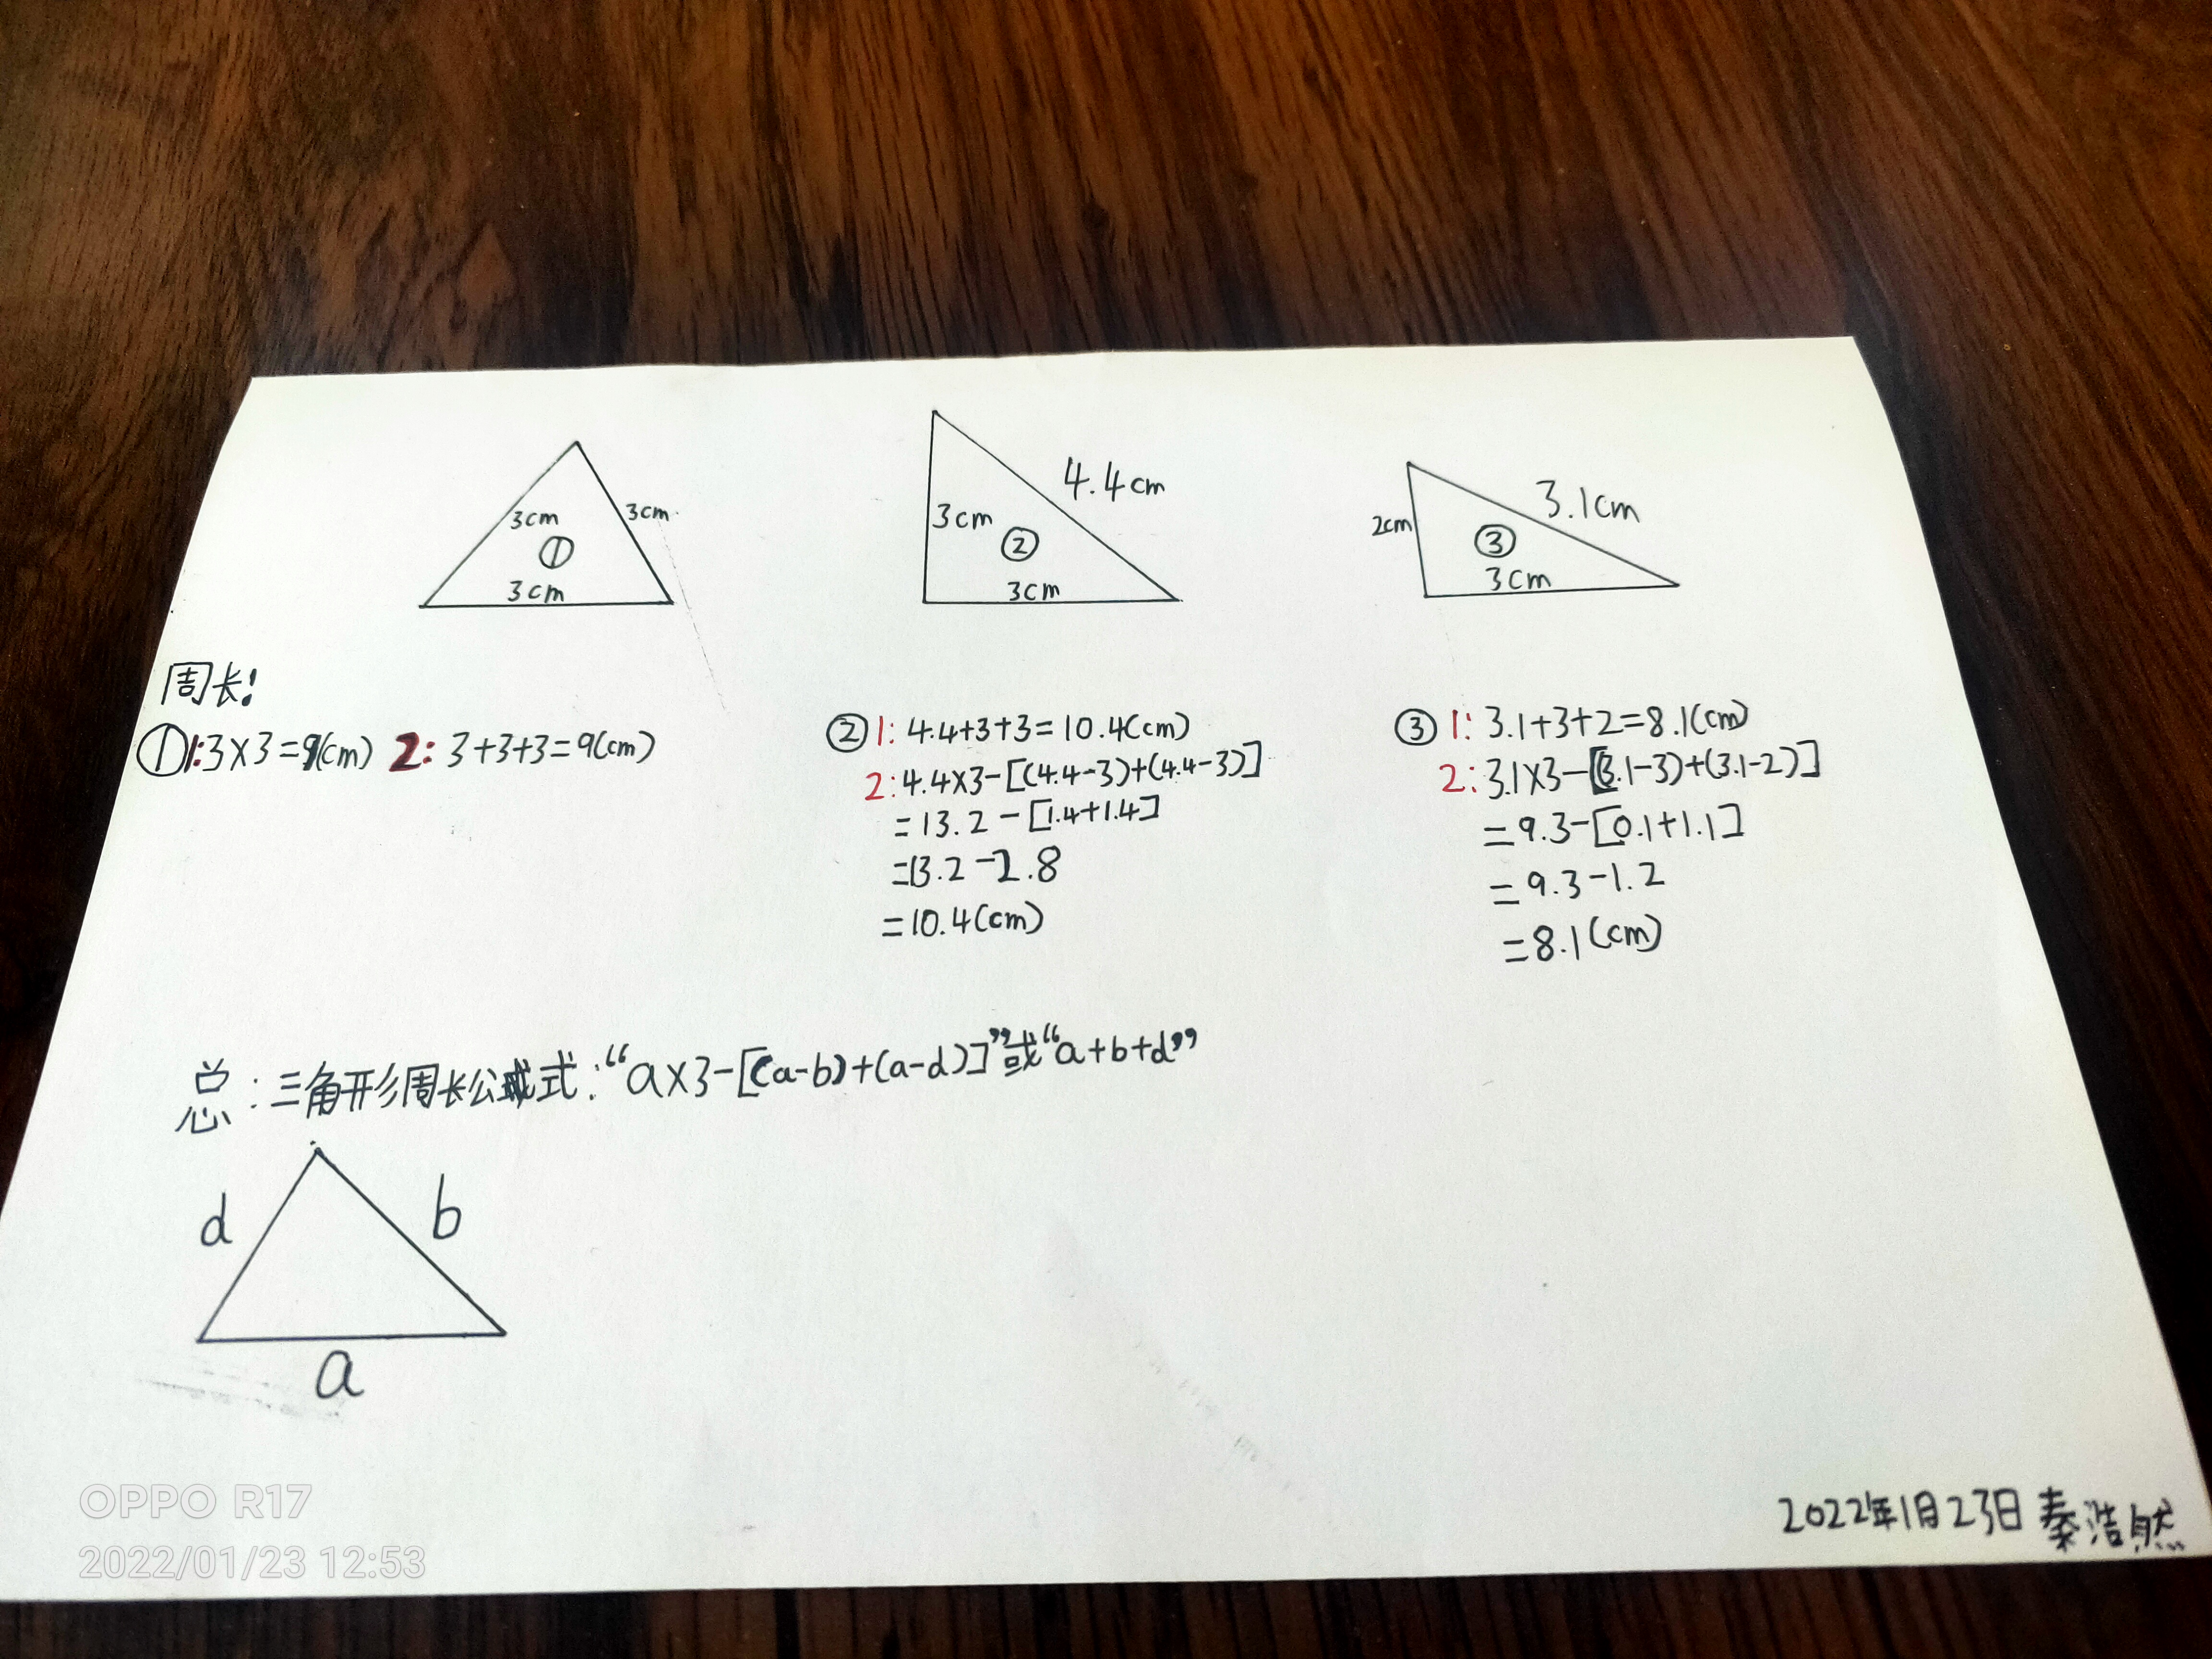 3cm
3cm
①
3cm
4.4cm
3cm
②
3cm
3.1cm
2cm
③
3cm
周长!
①1:3×3=9(cm) 2: 3+3+3=9(cm)
②1: 4.4+3+3=10.4(cm)
2:4.4×3-[(4.4-3)+(4.4-3)]
=13.2-[1.4+1.4]
=13.2-2.8
=10.4(cm)
③1: 3.1+3+2=8.1(cm)
2:3.1×3-[(3.1-3)+(3.1-2)]
=9.3-[0.1+1.1]
=9.3-1.2
=8.1(cm)
总:三角形周长公式:“a×3-[(a-b)+(a-d)]”或“a+b+d”
d
b
a
2022年1月23日 秦浩然
OPPO R17
2022/01/23 12:53